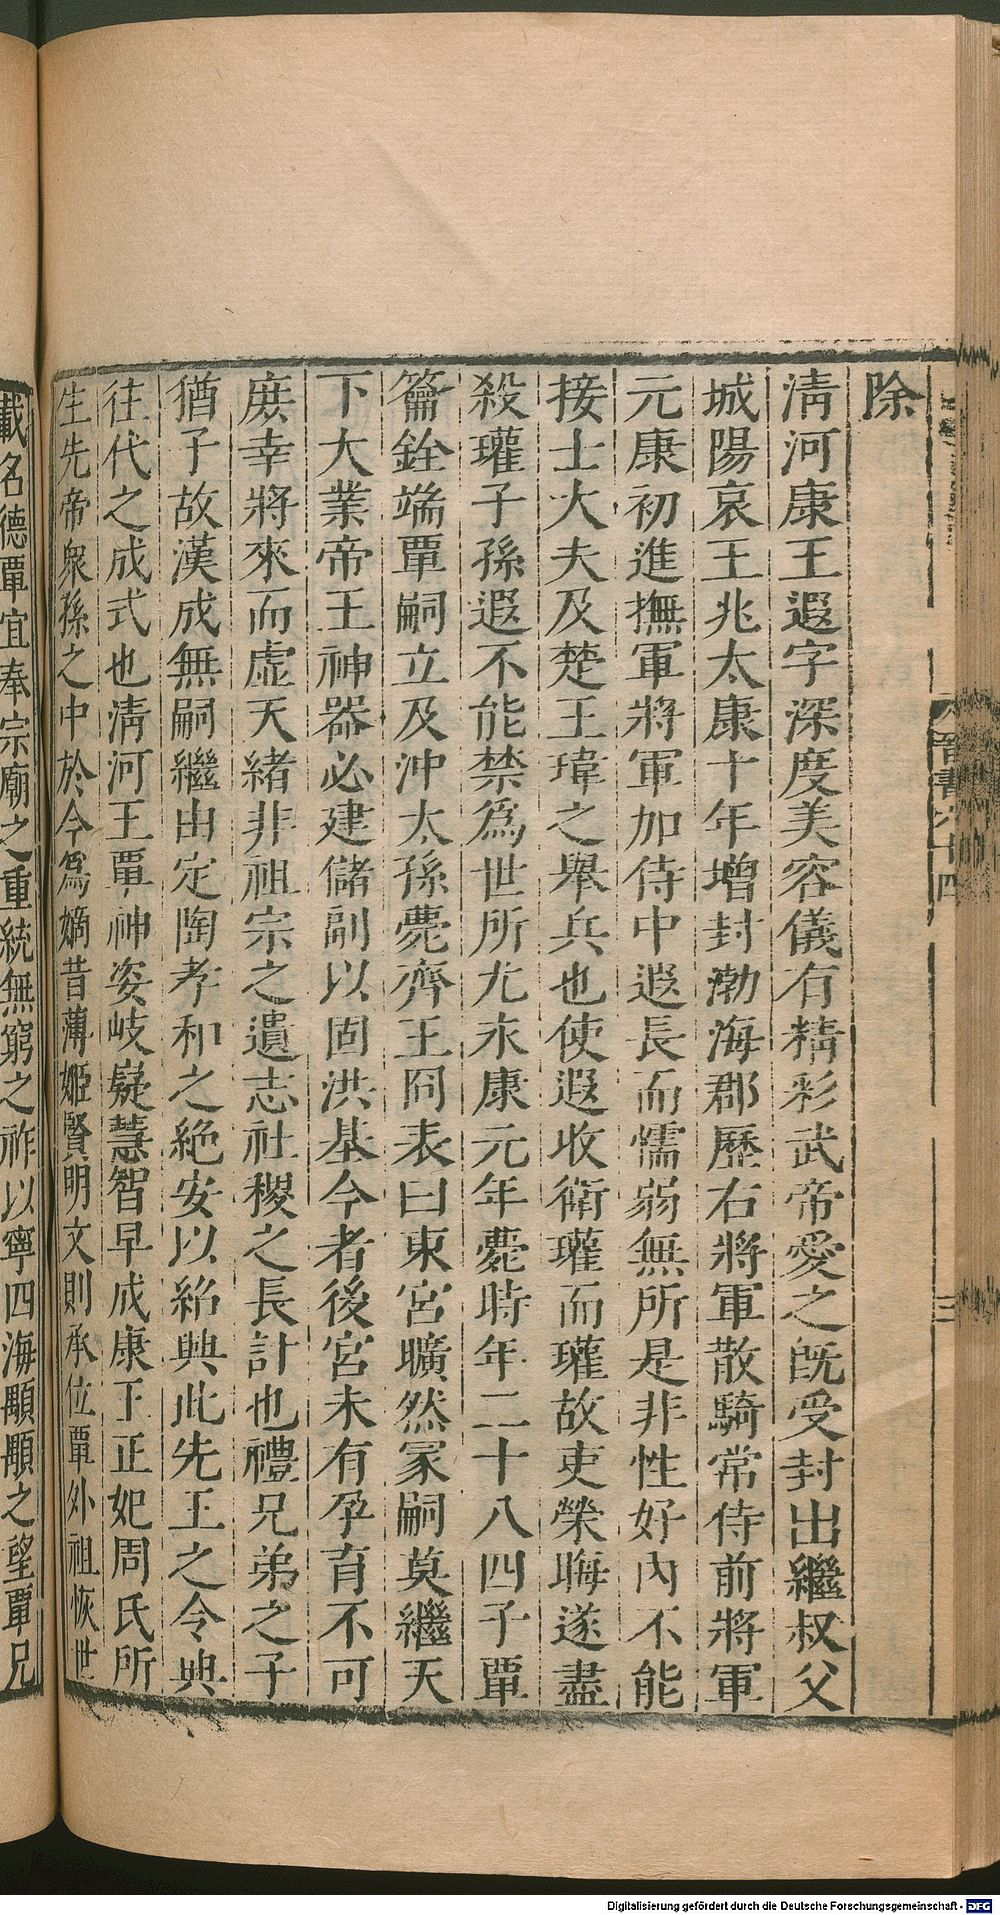 除
淸河康王遐字深度美容儀有精彩武帝愛之旣受封出繼叔父
城陽哀王兆太康十年增封渤海郡歷右將軍散騎常侍前將軍
元康初進撫軍將軍加侍中遐長而懦弱無所是非性好內不能
接士大夫及楚王瑋之舉兵也使遐收衞瓘而瓘故吏榮晦遂盡
殺瓘子孫遐不能禁爲世所尤永康元年薨時年二十八四子覃
籥銓端覃嗣立及沖太孫薨齊王冏表曰東宮曠然冢嗣莫繼天
下大業帝王神器必建儲副以固洪基今者後宮未有孕育不可
庶幸將來而虛天緖非祖宗之遺志社稷之長計也禮兄弟之子
猶子故漢成無嗣繼由定陶孝和之絕安以紹興此先王之令典
往代之成式也淸河王覃神姿岐嶷慧智早成康王正妃周氏所
生先帝衆孫之中於今爲嫡昔薄姬賢明文則承位覃外祖恢世
載名德覃宜奉宗廟之重統無窮之祚以寧四海顒顒之望覃兄
晉書六十四
三
Digitalisierung gefördert durch die Deutsche Forschungsgemeinschaft - DFG